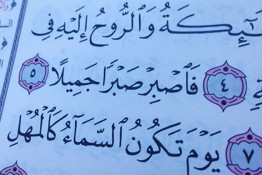 ئِكَةُ وَٱلرُّوحُ إِلَيْهِ فِى
٤ فَٱصْبِرْ صَبْرًا جَمِيلًا ٥
٧ يَوْمَ تَكُونُ ٱلسَّمَآءُ كَٱلْمُهْلِ